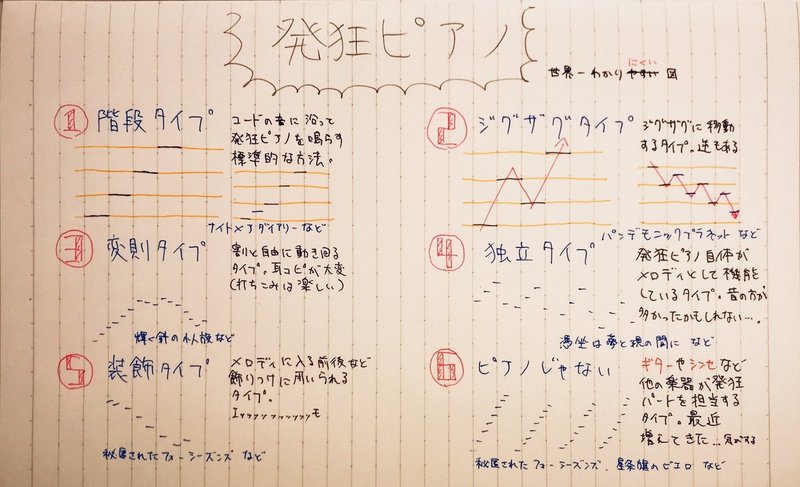 発狂ピアノ
にくい
世界一わかりやすい図
1 階段タイプ
コードの音に沿って
発狂ピアノを鳴らす
標準的な方法。
ナイトメアダイアリーなど
2 ジグザグタイプ
ジグザグに移動
するタイプ。逆もある
パンデモニックプラネットなど
3 変則タイプ
割と自由に動き回る
タイプ。耳コピが大変
(打ちこみは楽しい)
輝く針の小人族など
4 独立タイプ
発狂ピアノ自体が
メロディとして機能
しているタイプ。昔の方が
多かったかもしれない…。
憑坐は夢と現の間に など
5 装飾タイプ
メロディに入る前後など
飾りつけに用いられる
タイプ。
秘匿されたフォーシーズンズ など
6 ピアノじゃない
ギターやシンセなど
他の楽器が発狂
パートを担当する
タイプ。最近
増えてきた…気がする
秘匿されたフォーシーズンズ、星条旗のピエロ など